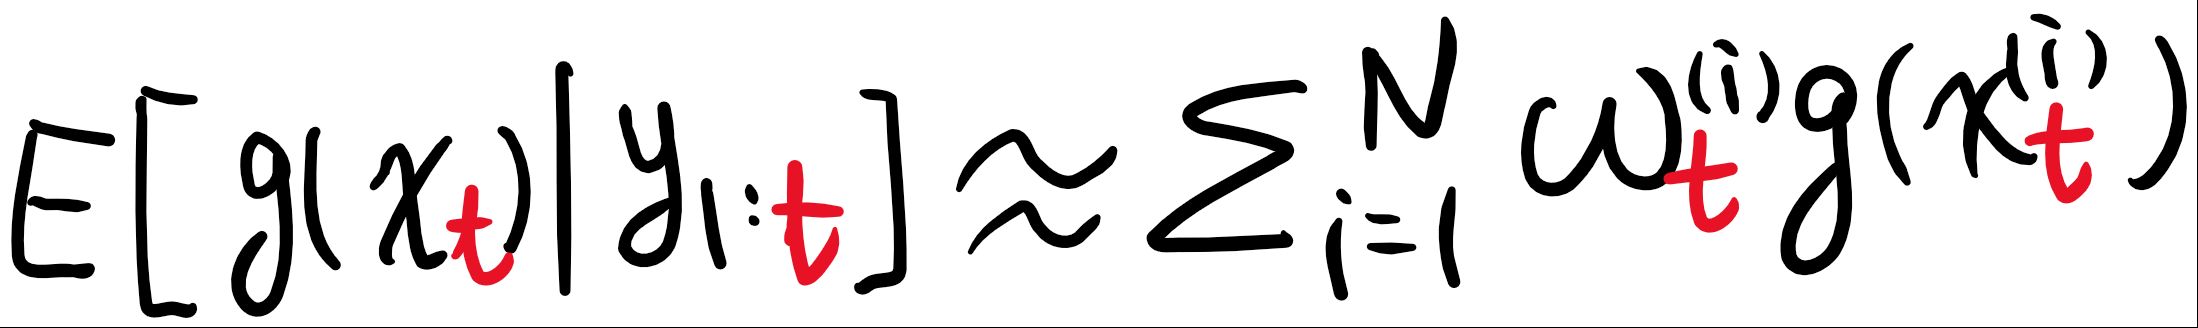 E[g(x_t)|y_{1:t}] ≈ ∑_{i=1}^{N} ω_t^{(i)} g(x_t^{(i)})